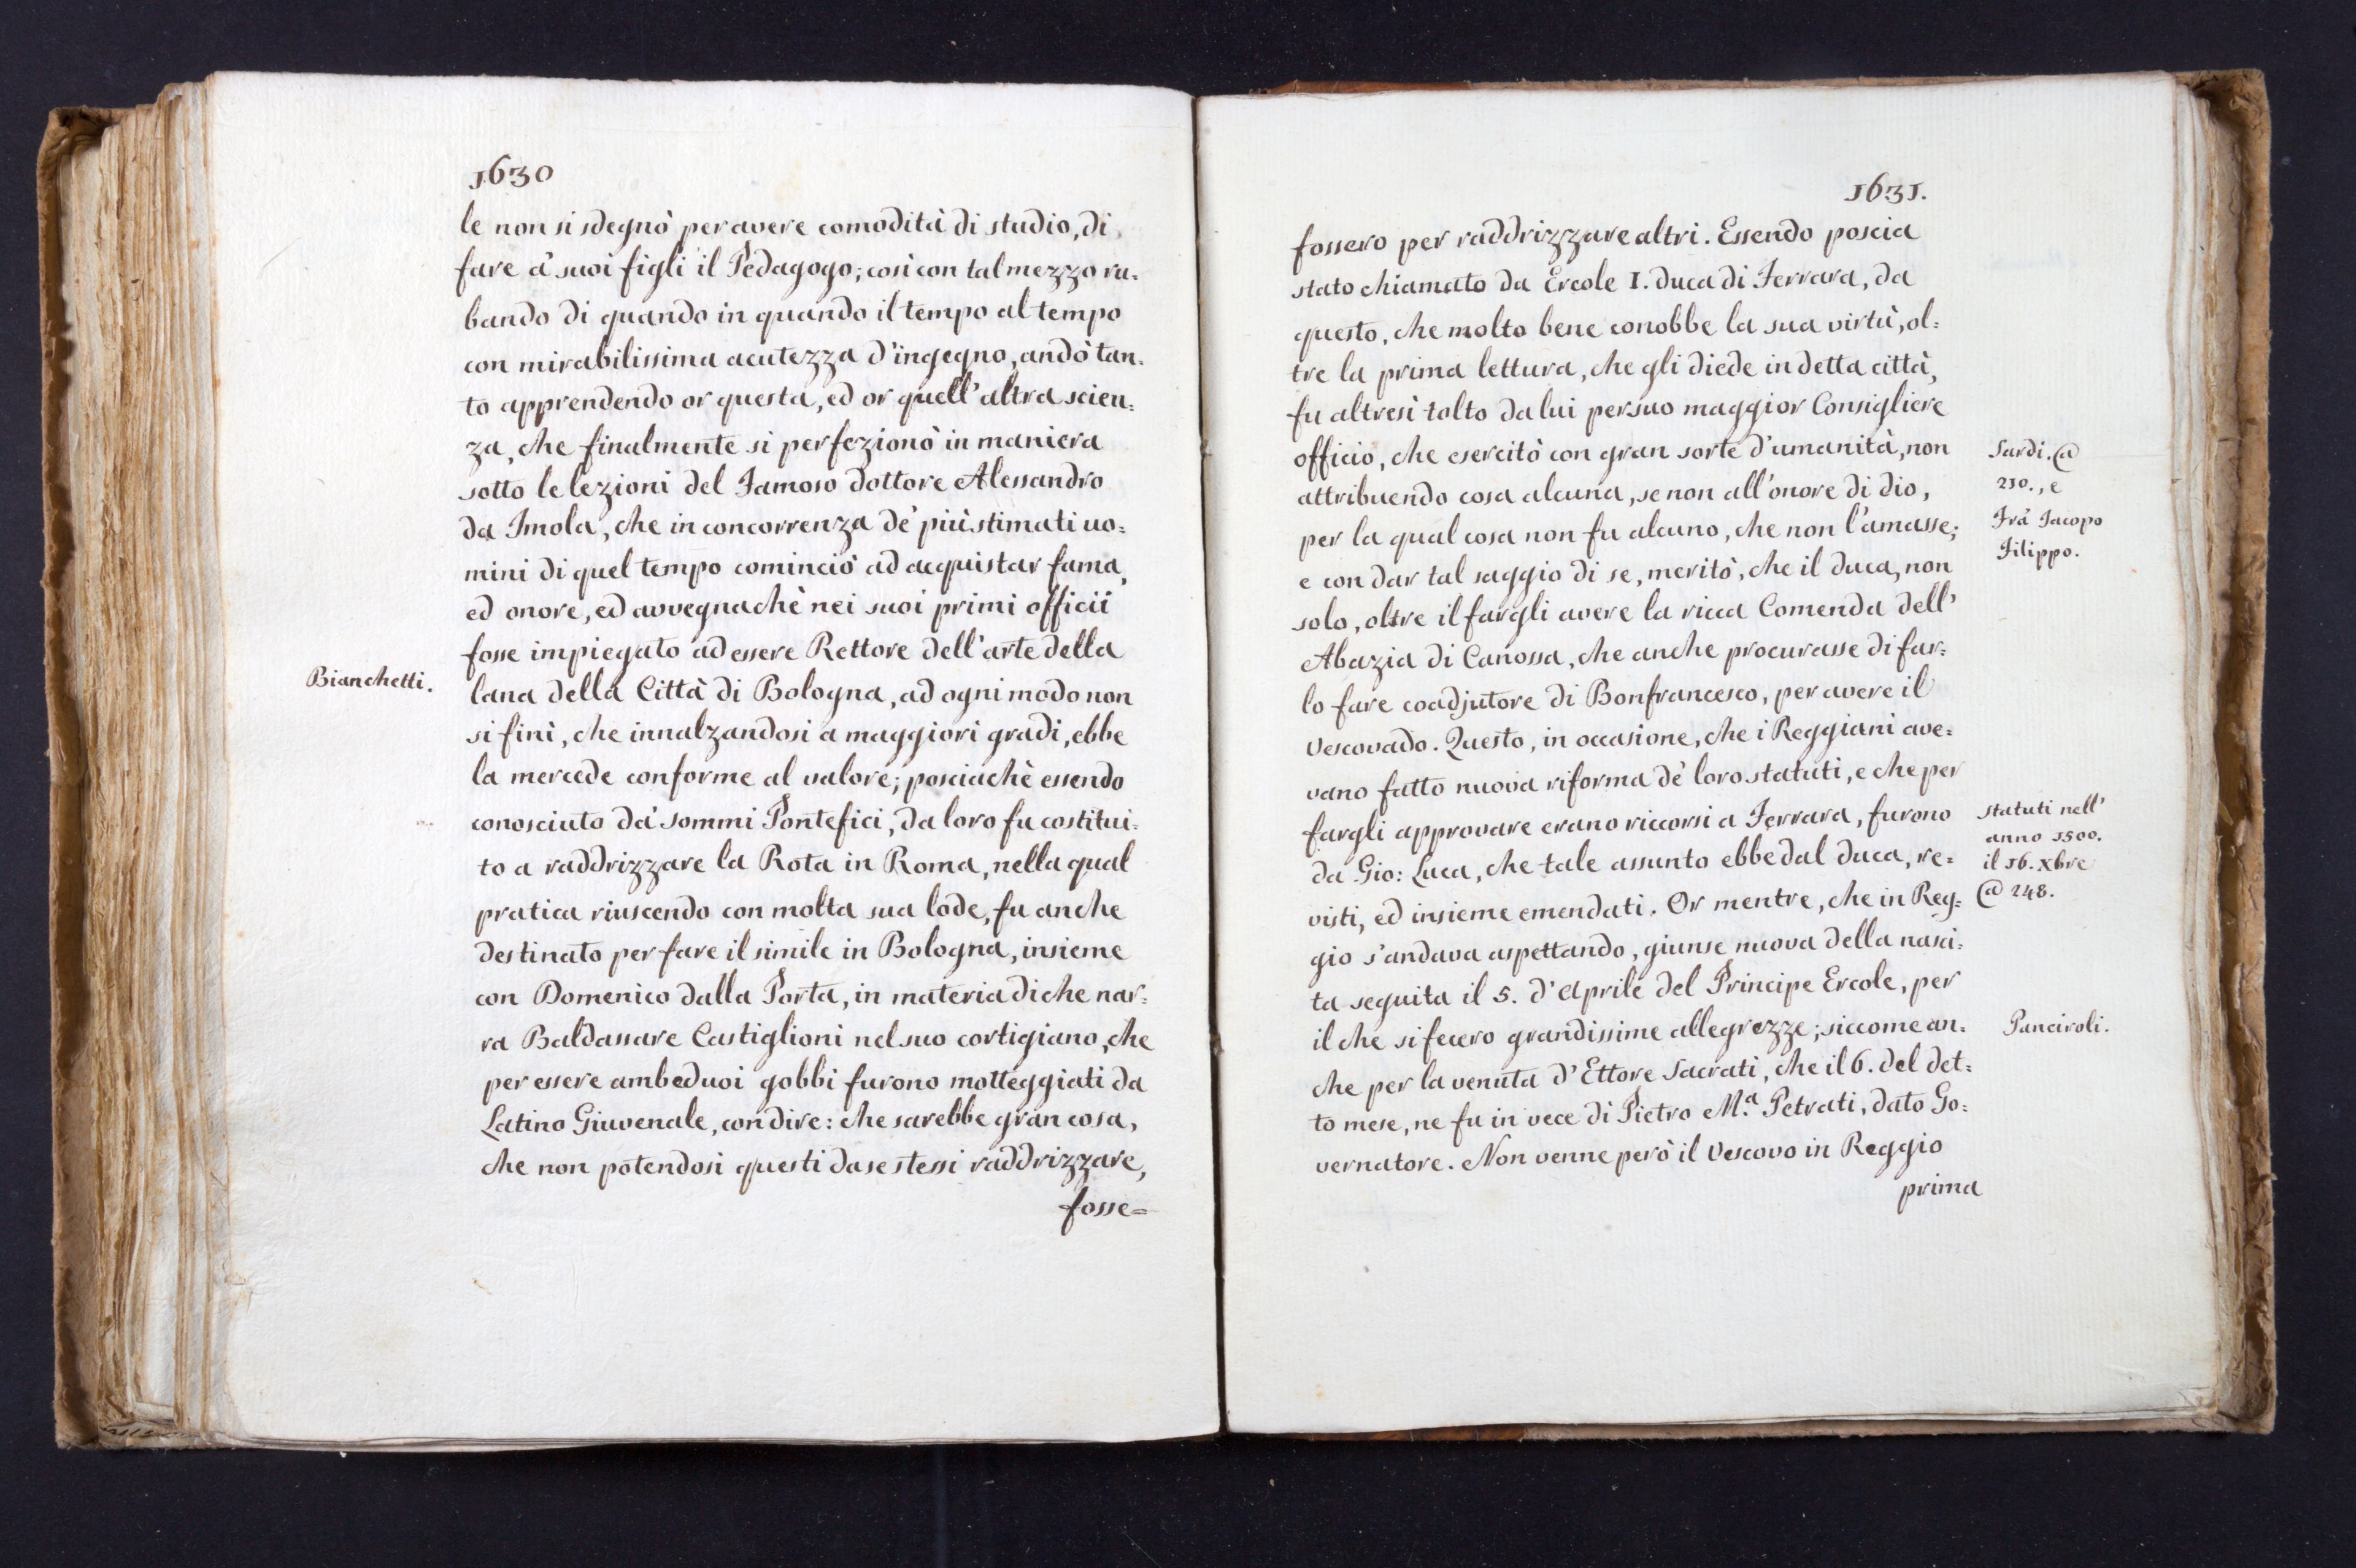 1630
le non si sdegnò per avere comodità di studio, di
fare a' suoi figli il Pedagogo; così con tal mezzo ru=
bando di quando in quando il tempo al tempo
con mirabilissima acutezza d'ingegno, andò tan=
to apprendendo or questa, ed or quell'altra scien=
za, che finalmente si perfezionò in maniera
sotto le lezioni del Famoso dottore Alessandro
da Imola, che in concorrenza de' più stimati uo=
mini di quel tempo cominciò ad acquistar fama,
ed onore, ed avvegnachè nei suoi primi officii
fosse impiegato ad essere Rettore dell'arte della
Bianchetti.
lana della Città di Bologna, ad ogni modo non
si finì, che innalzandosi a maggiori gradi, ebbe
la mercede conforme al valore; posciachè essendo
conosciuto da' sommi Pontefici, da loro fu costitui=
to a raddrizzare la Rota in Roma, nella qual
pratica riuscendo con molta sua lode, fu anche
destinato per fare il simile in Bologna, insieme
con Domenico dalla Porta, in materia di che nar=
ra Baldassare Castiglioni nel suo cortigiano, che
per essere ambeduoi gobbi furono motteggiati da
Latino Giuvenale, con dire: che sarebbe gran cosa,
che non potendosi questi da se stessi raddrizzare,
fosse=
1631.
fossero per raddrizzare altri. Essendo poscia
stato chiamato da Ercole I. duca di Ferrara, da
questo, che molto bene conobbe la sua virtù, ol=
tre la prima lettura, che gli diede in detta città,
fu altresì tolto da lui per suo maggior Consigliere
officio, che esercitò con gran sorte d'umanità, non
attribuendo cosa alcuna, se non all'onore di dio,
per la qual cosa non fu alcuno, che non l'amasse;
e con dar tal saggio di se, meritò, che il duca, non
solo, oltre il fargli avere la ricca Comenda dell'
Abazia di Canossa, che anche procurasse di far=
lo fare coadjutore di Bonfrancesco, per avere il
Vescovado. Questo, in occasione, che i Reggiani ave=
vano fatto nuova riforma de' loro statuti, e che per
fargli approvare erano riccorsi a Ferrara, furono
da Gio: Luca, che tale assunto ebbe dal duca, re=
visti, ed insieme emendati. Or mentre, che in Reg=
gio s'andava aspettando, giunse nuova della nasci=
ta seguita il 5. d'Aprile del Principe Ercole, per
il che si fecero grandissime allegrezze; siccome an=
che per la venuta d'Ettore Sacrati, che il 6. del det=
to mese, ne fu in vece di Pietro M.a Petrati, dato Go=
vernatore. Non venne però il Vescovo in Reggio
prima
Sardi. @
210., e
Frà Jacopo
Filippo.
statuti nell'
anno 1500.
il 16. xbre
@ 248.
Panciroli.